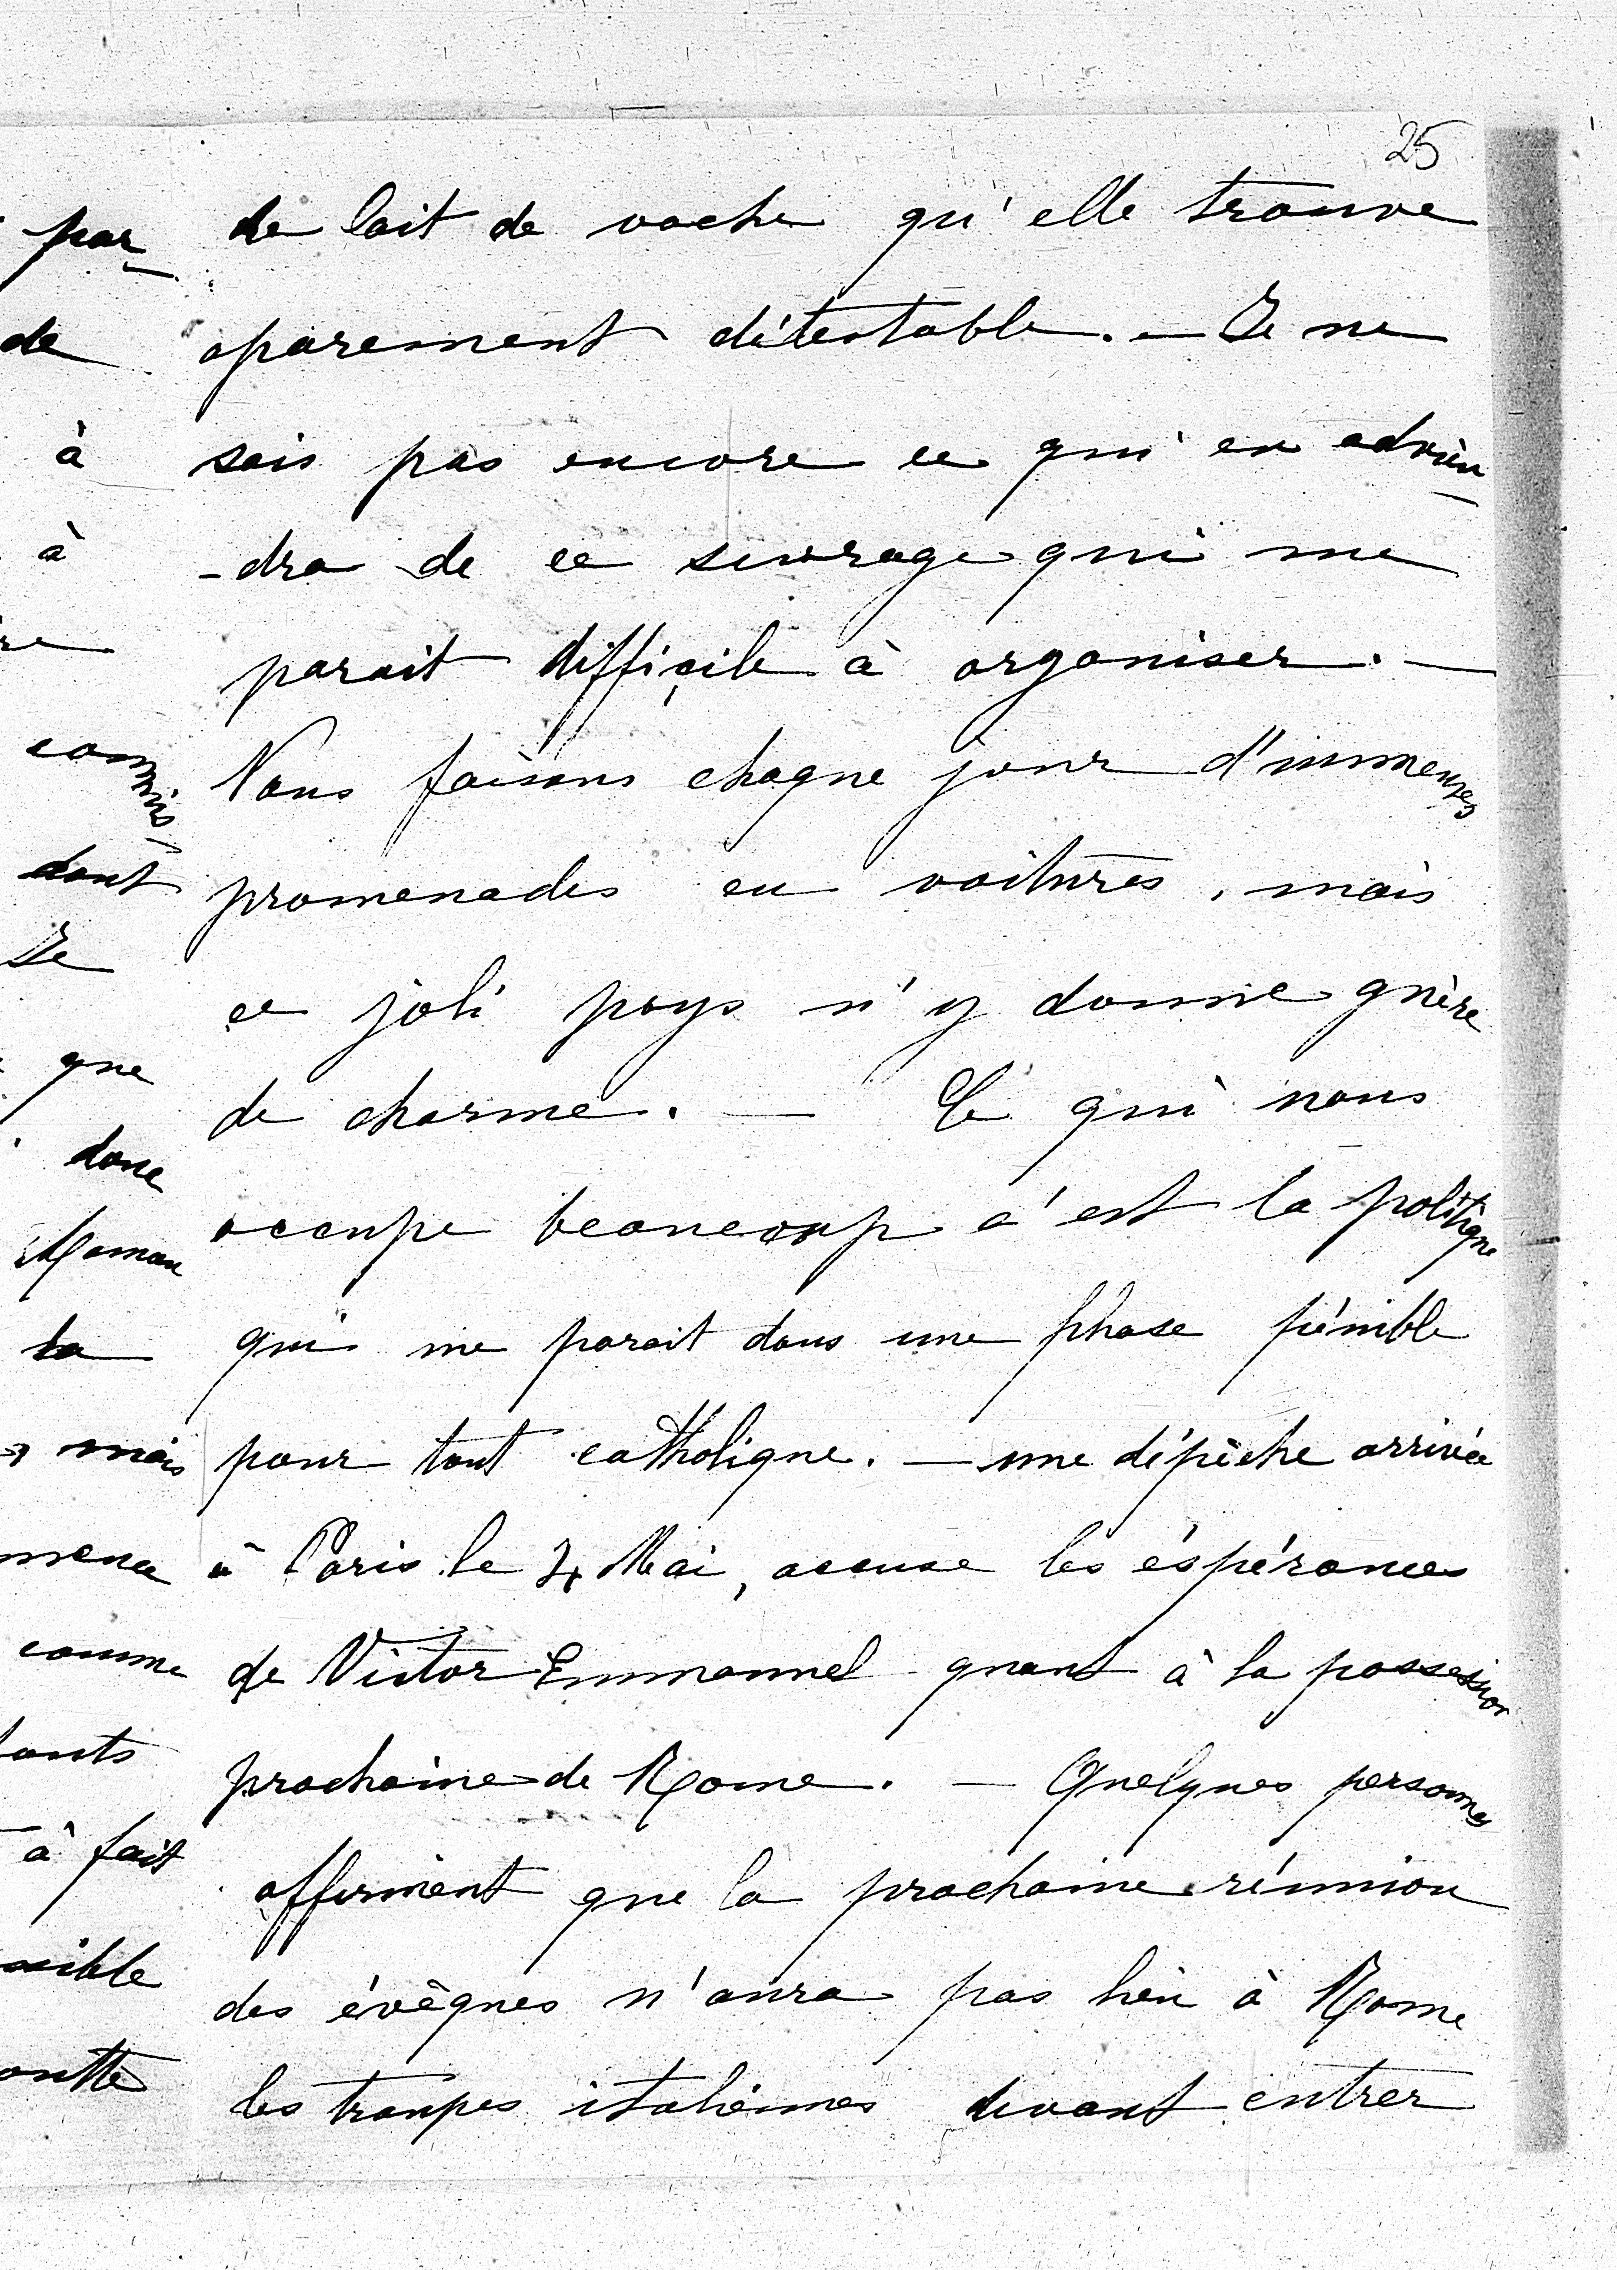 25
de lait de vache qu'elle trouve
aparement détestable. — Je ne
sais pas encore ce qui en advien
-dra de ce sevrage qui me
parait difficile à organiser. —
Nous faisons chaque jour d'immenses
promenades en voitures, mais
ce joli pays n'y donne guère
de charme. — Ce qui nous
occupe beaucoup c'est la politique
qui me parait dans une phase pénible
pour tout catholique. — une dépêche arrivée
à Paris le 4 Mai, accuse les éspérances
de Victor Emmanuel quant à la possession
prochaine de Rome. — Quelques personnes
affirment que la prochaine réunion
des évêques n'aura pas lieu à Rome
les troupes italiennes devant entrer
par
de
à
à
commis
dont
Je
que
donc
Maman
sa
mais
comme
à fait